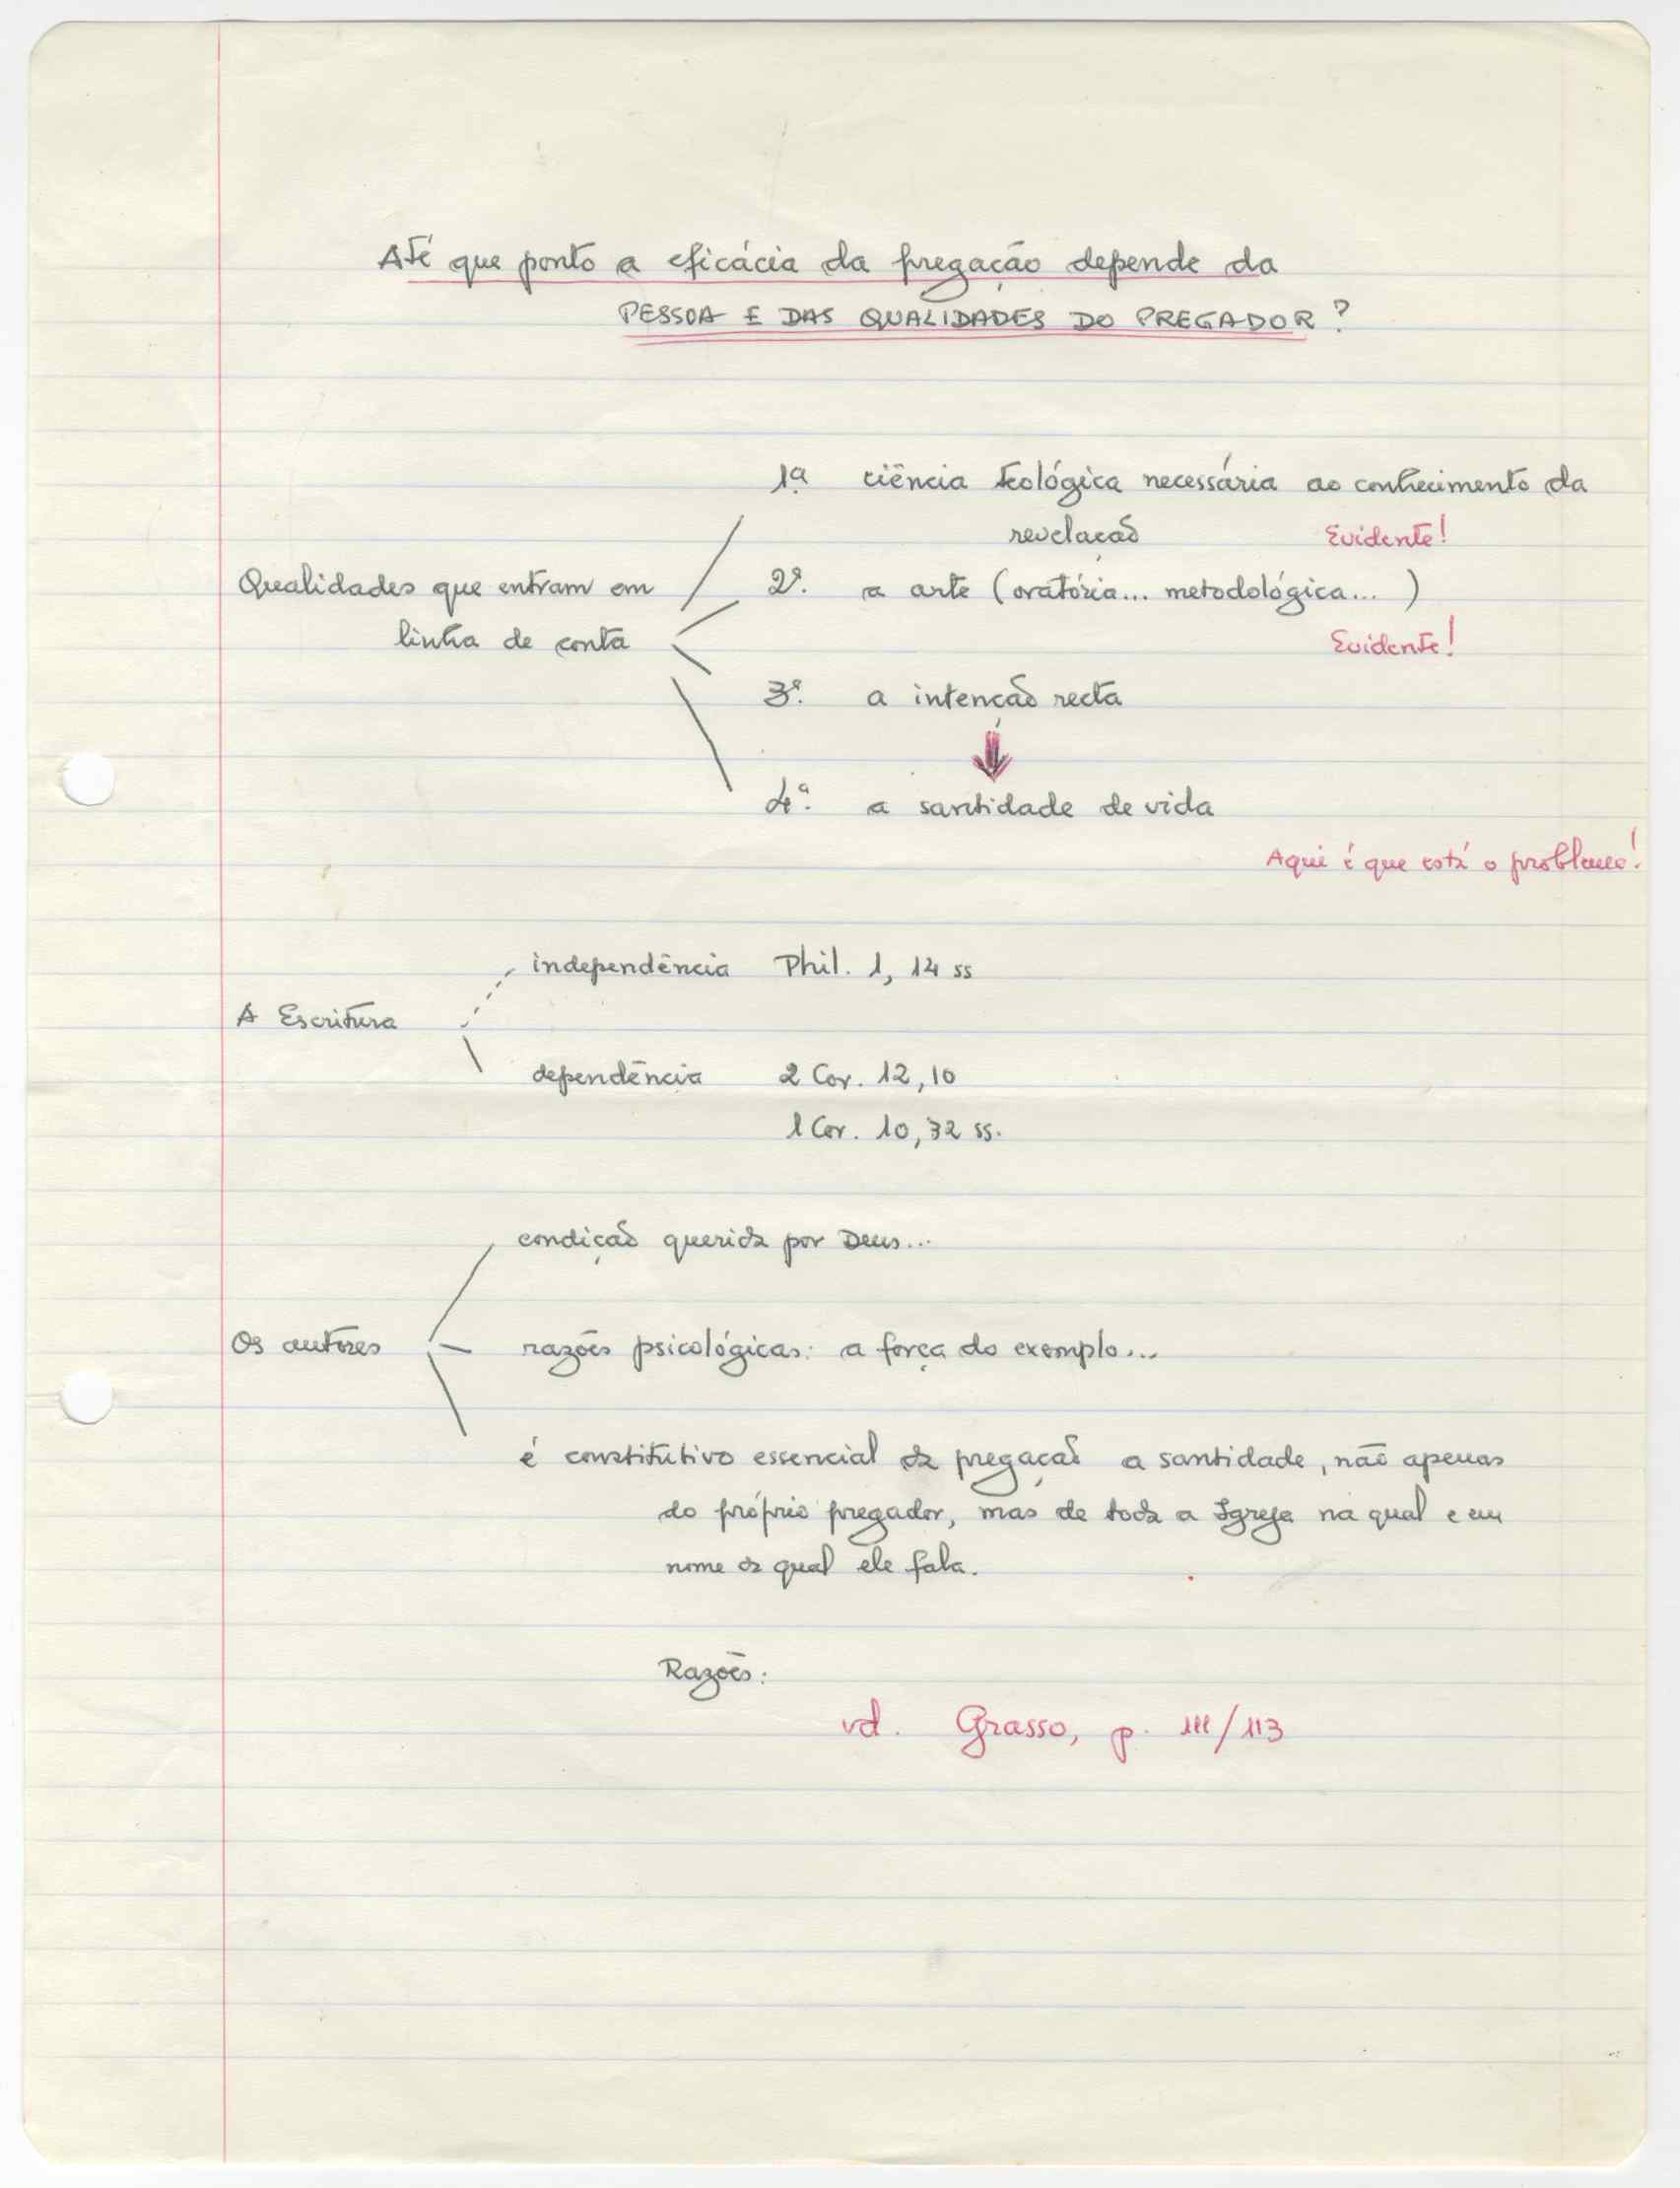 Até que ponto a eficácia da pregação depende da
PESSOA E DAS QUALIDADES DO PREGADOR?
1ª ciência teológica necessária ao conhecimento da
revelação Evidente!
Qualidades que entram em 2ª. a arte (oratória... metodológica...)
linha de conta Evidente!
3ª. a intenção recta
4ª. a santidade de vida
Aqui é que está o problema!
independência Phil. 1, 14 ss
A Escritura
dependência 2 Cor. 12,10
1 Cor. 10,32 ss.
condição querida por Deus...
Os autores razões psicológicas: a força do exemplo...
é constitutivo essencial da pregação a santidade, não apenas
do próprio pregador, mas de toda a Igreja na qual e em
nome da qual ele fala.
Razões:
vd. Grasso, p. 111/113